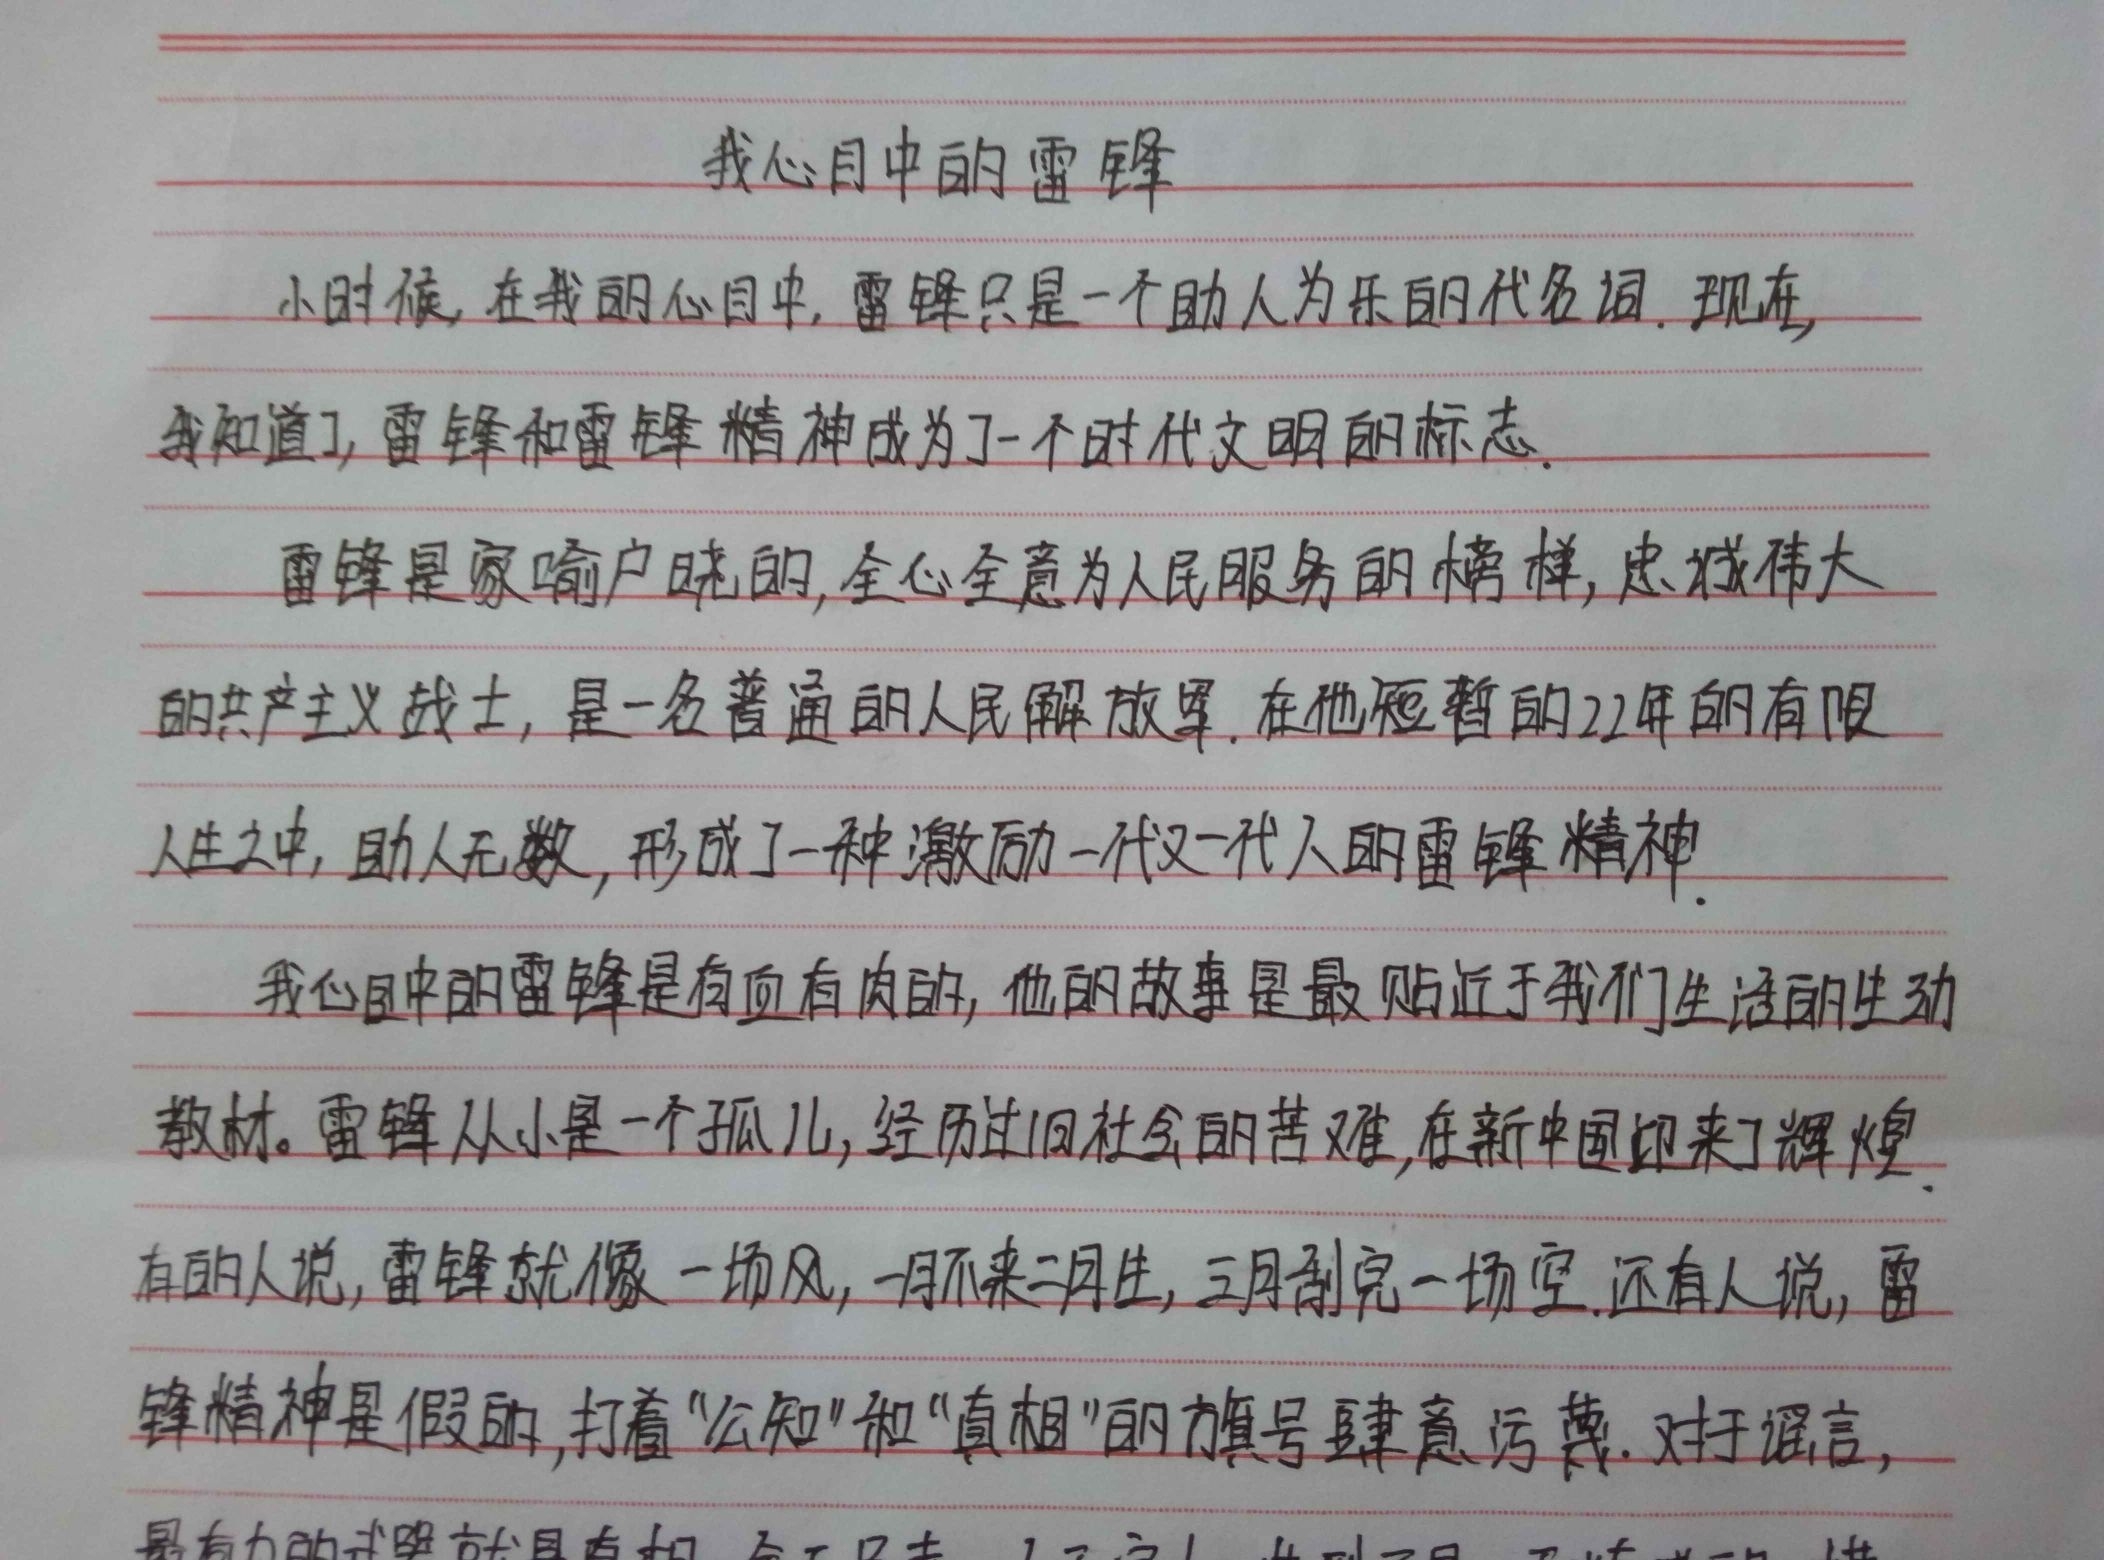 我心目中的雷锋
小时候,在我的心目中,雷锋只是一个助人为乐的代名词.现在,
我知道了,雷锋和雷锋精神成为了一个时代文明的标志.
雷锋是家喻户晓的,全心全意为人民服务的榜样,忠诚伟大
的共产主义战士,是一名普通的人民解放军.在他短暂的22年的有限
人生之中,助人无数,形成了一种激励一代又一代人的雷锋精神.
我心目中的雷锋是有血有肉的,他的故事是最贴近于我们生活的生动
教材。雷锋从小是一个孤儿,经历过旧社会的苦难,在新中国迎来了辉煌.
有的人说,雷锋就像一场风,一月不来二月生,三月刮完一场空.还有人说,雷
锋精神是假的,打着"公知"和"真相"的旗号肆意污蔑.对于谣言,
最有力的武器就是真相